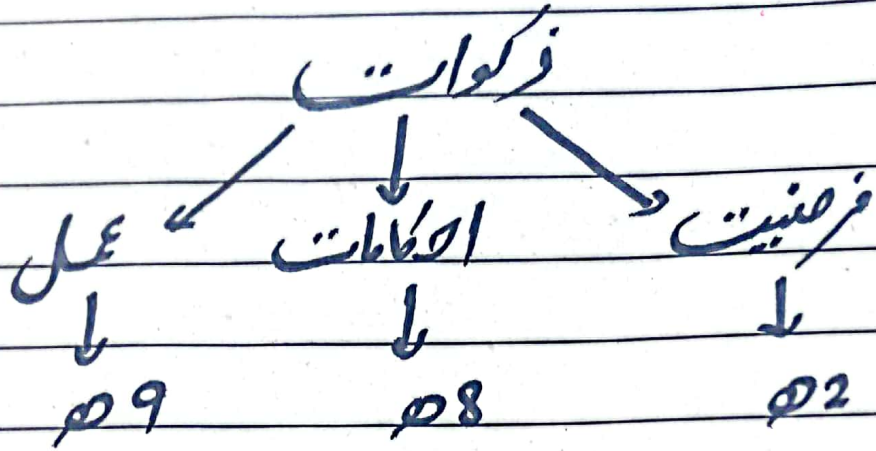 زکوات
فرضیت احکامات عمل
2ھ 8ھ 9ھ